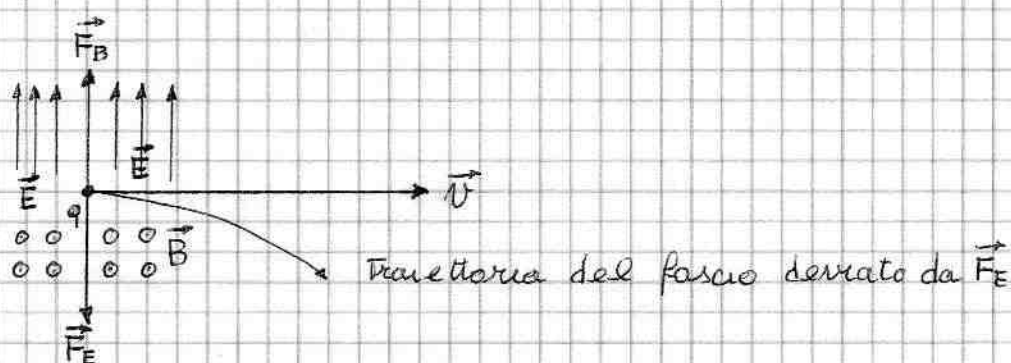 F⃗_B
E⃗
E⃗
v⃗
q
B⃗
Traiettoria del fascio deviato da F⃗_E
F⃗_E